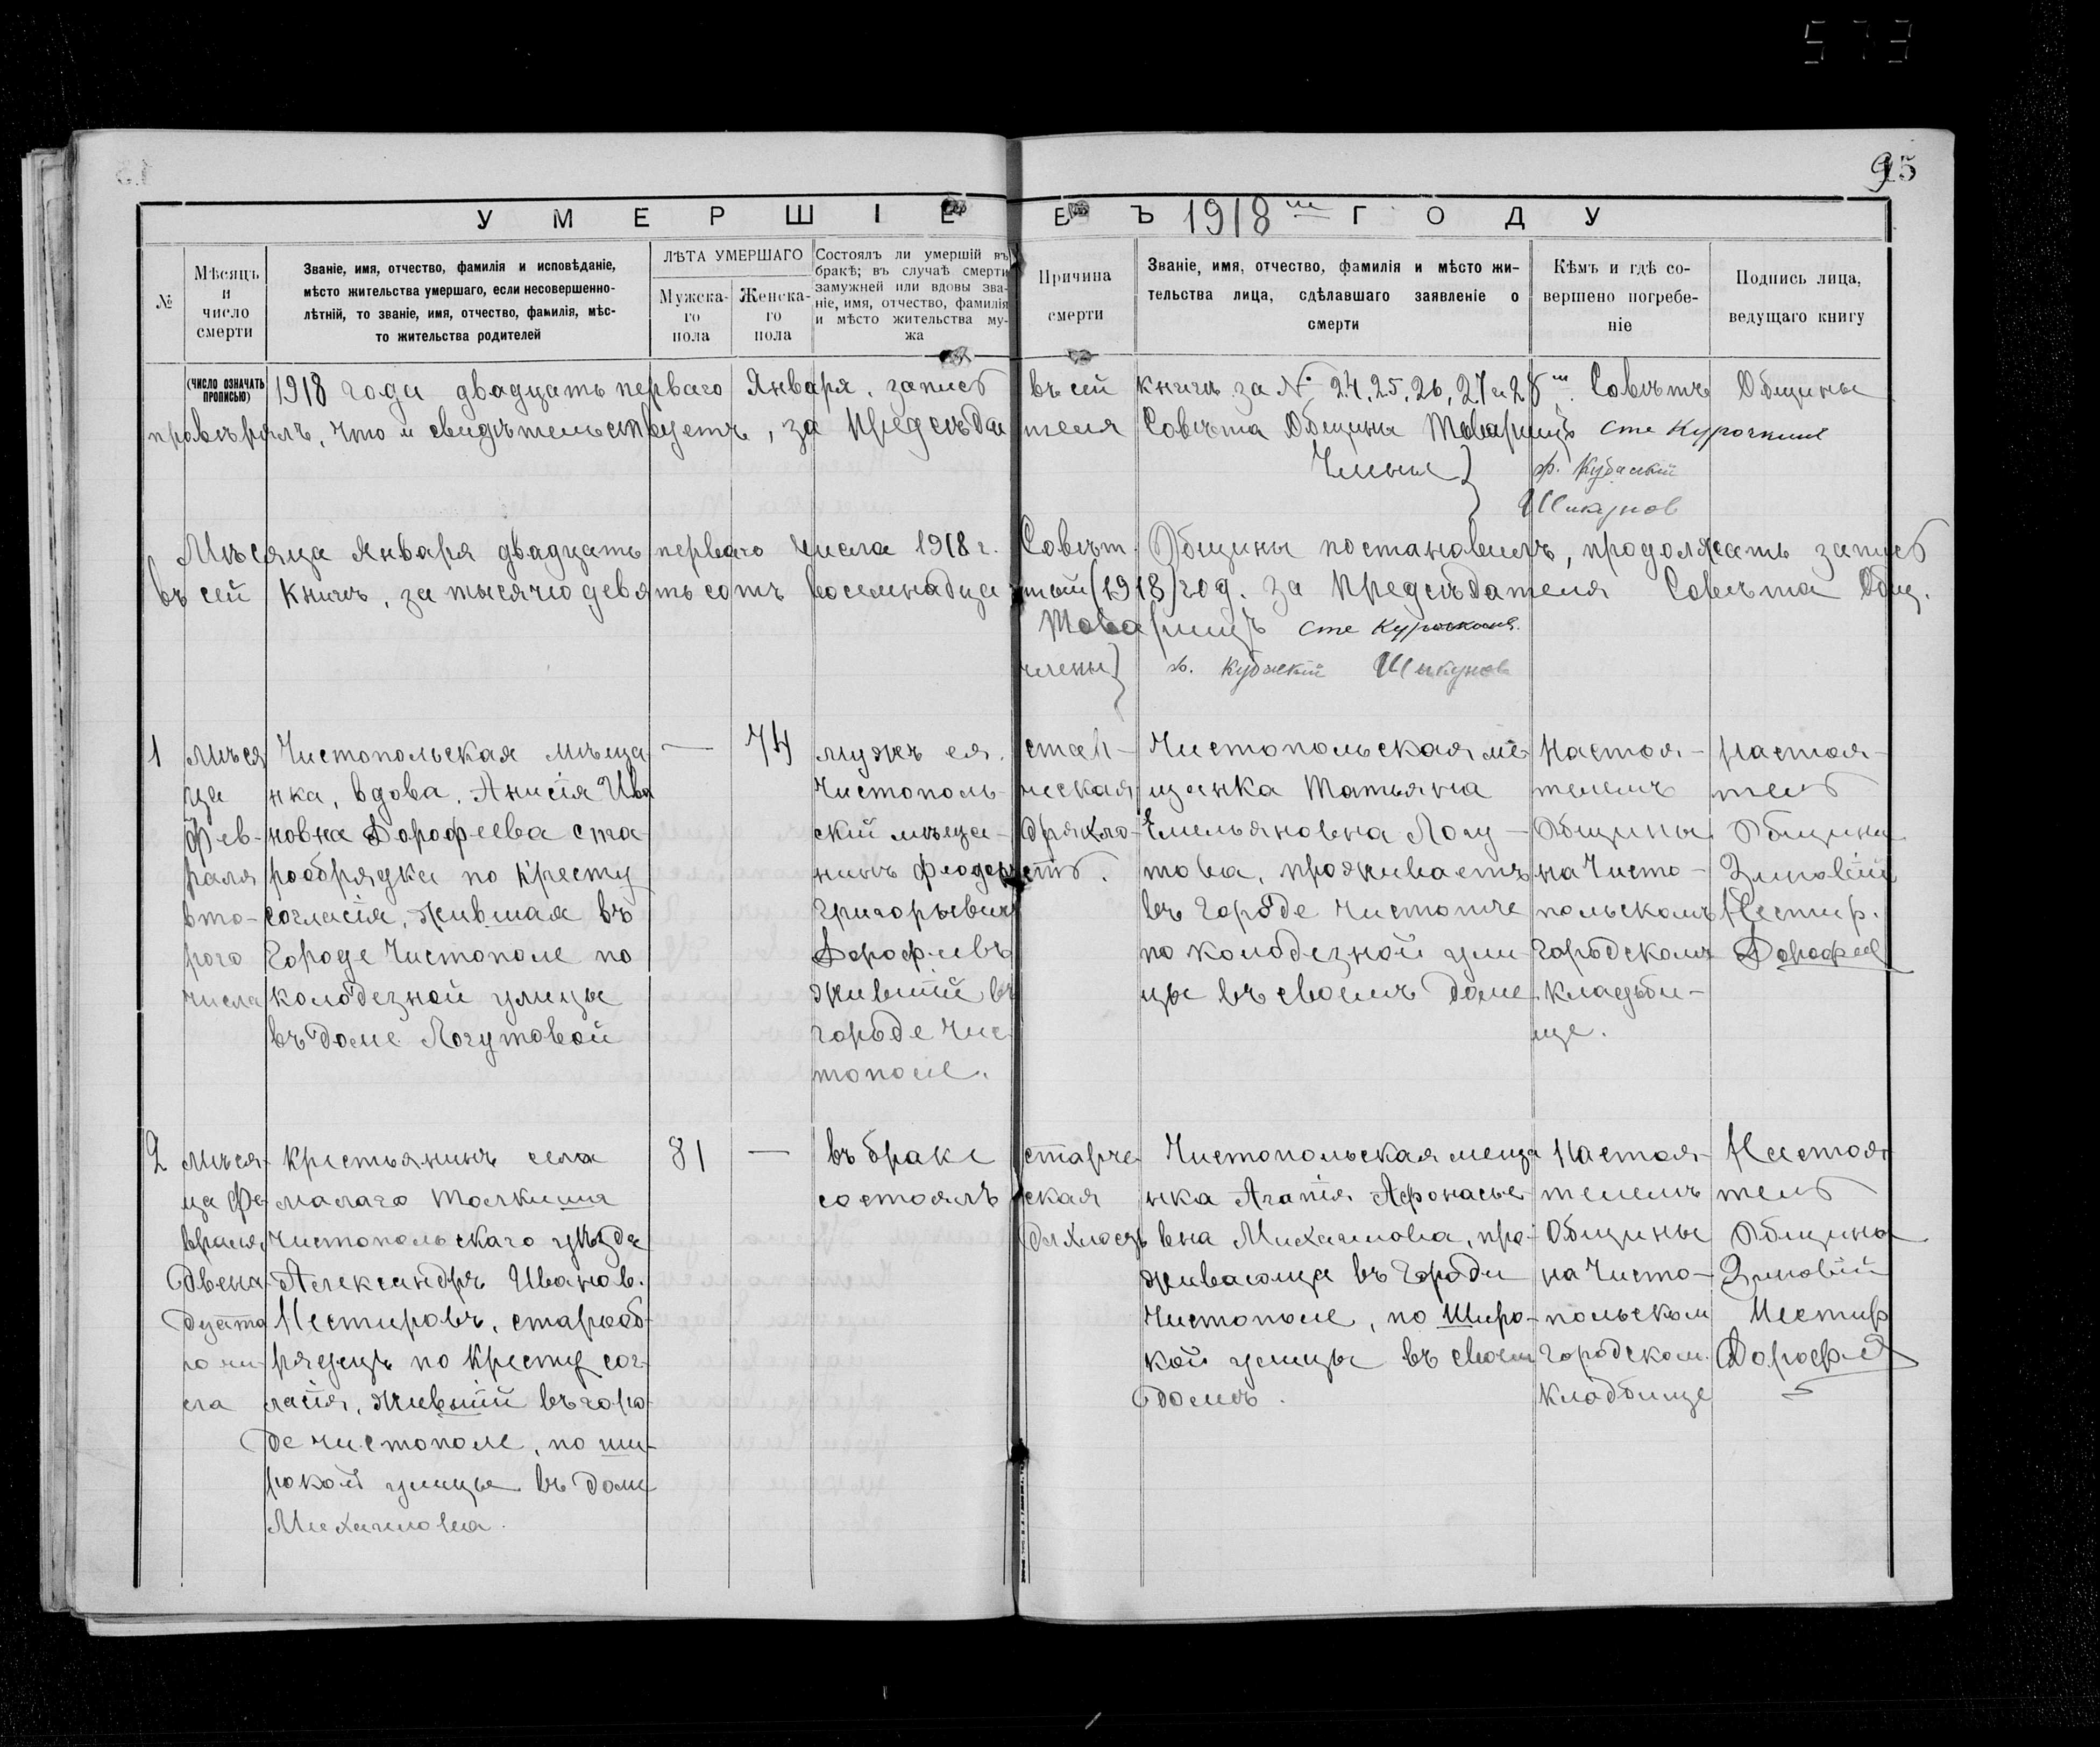 573
95
УМЕРШІЕ ВЪ 1918 ГОДУ
№
Мѣсяцъ
и
число
смерти
Званіе, имя, отчество, фамилія и исповѣданіе,
мѣсто жительства умершаго, если несовершенно-
лѣтній, то званіе, имя, отчество, фамилія, мѣс-
то жительства родителей
ЛѢТА УМЕРШАГО
Мужска-
го
пола
Женска-
го
пола
Состоялъ ли умершій въ
бракѣ; въ случаѣ смерти
замужней или вдовы зва-
ніе, имя, отчество, фамилія
и мѣсто жительства му-
жа
Причина
смерти
Званіе, имя, отчество, фамилія и мѣсто жи-
тельства лица, сдѣлавшаго заявленіе о
смерти
Кѣмъ и гдѣ со-
вершено погребе-
ніе
Подпись лица,
ведущаго книгу
(ЧИСЛО ОЗНАЧАТЬ
ПРОПИСЬЮ)
1918 года двадцать перваго Января, запись въ сей книгѣ за № 24, 25, 26, 27 и 28 Совѣтъ Общины
провѣрялъ, что и свидѣтельствуетъ, за Предсѣдателя Совѣта Общины Товарищъ Сте Курочкинъ
Члены } Ф. Кубаскій
Шикунов
Мѣсяца Января двадцать перваго числа 1918 г. Совѣт Общины постановилъ, продолжать запись
въ сей Книгѣ, за тысячю девятьсотъ восемнадцатый (1918) год. за Предсѣдателя Совѣта Общ.
Товарищъ Сте Курочкинъ
члены } Ф. Кубаскій Шикунов
1
Мѣся
ца
Фев-
раля
вто-
рого
числа
Чистопольская мѣща-
нка, вдова, Анисія Ива
новна Дорофеева ста-
рообрядка по Кресту
согласія, жившая въ
Городе Чистополе по
колодезной улицы
въ доме Логутовой
—
74
мужъ ея.
Чистополь-
скій мѣща-
нинъ Феодор
Григорьевич
Дорофеевъ
жившій въ
городе Чис
тополе.
стар-
ческая
дряхло-
сть.
Чистопольская мѣ-
щанка Татьяна
Емельяновна Логу-
това, проживаетъ
въ городе Чистополе
по колодезной ули-
цы въ своемъ доме.
Настоя-
телемъ
Общины
на Чисто-
польскомъ
Городскомъ
кладби-
ще.
Настоя-
тель
Общины
Зиновій
Нестир.
Дорофеев
2
Мѣся-
ца Фе
враля,
двена
дцато
го чи-
сла
Крестьянинъ села
малаго Толкиша
Чистопольскаго уѣзда
Александръ Иванов.
Нестировъ, старооб-
рядецъ по Кресту сог-
ласія, жившій въ горо-
де Чистополе, по ши-
рокой улицы въ доме
Михаилова.
81
—
въ браке
состоялъ
старче
ская
дряхлость
Чистопольская меща
нка Агапія Афонасье
вна Михаилова, про-
живающа въ Городи
Чистополе, по Широ-
кой улицы въ своем
домѣ.
Настоя-
телемъ
Общины
на Чисто-
польском
Городском
Кладбище
Настоя
тель
Общины
Зиновій
Нестир
Дорофеев